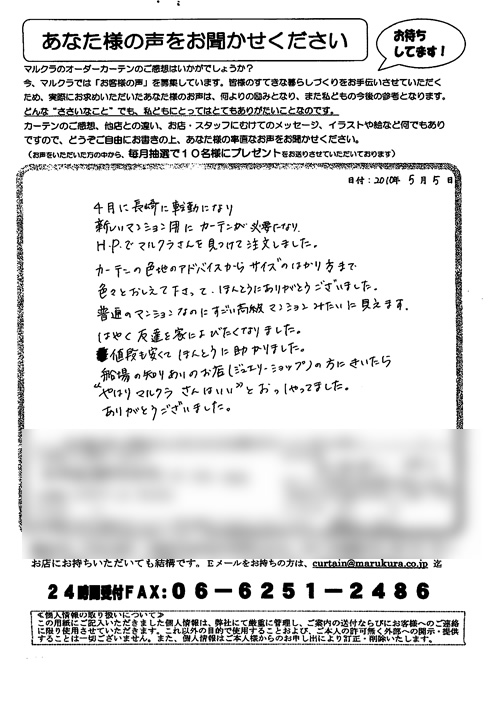 あなた様の声をお聞かせください
お待ち
してます!
マルクラのオーダーカーテンのご感想はいかがでしょうか?
今、マルクラでは「お客様の声」を募集しています。皆様のすてきな暮らしづくりをお手伝いさせていただく
ため、実際にお求めいただいたあなた様のお声は、何よりの励みとなり、また私どもの今後の参考となります。
どんな“ささいなこと”でも、私どもにとってはとてもありがたいことなのです。
カーテンのご感想、他店との違い、お店・スタッフにむけてのメッセージ、イラストや絵など何でもあり
ですので、どうぞご自由にお書きの上、あなた様の率直なお声をお聞かせください。
(お声をいただいた方の中から、毎月抽選で10名様にプレゼントをお送りさせていただいております)
日付:2010年 5月 5日
4月に長崎に転勤になり
新しいマンション用にカーテンが必要になり、
H.P.でマルクラさんを見つけて注文しました。
カーテンの色地のアドバイスからサイズのはかり方まで
色々とおしえて下さって、ほんとうにありがとうございました。
普通のマンションなのにすごい高級マンションみたいに見えます。
はやく友達を家によびたくなりました。
値段も安くてほんとうに助かりました。
船場の知りあいのお店(ジュエリーショップ)の方にきいたら
“やはりマルクラさんはいい”とおっしゃってました。
ありがとうございました。
お店にお持ちいただいても結構です。Eメールをお持ちの方は、curtain@marukura.co.jp 迄
24時間受付FAX:06-6251-2486
≪個人情報の取り扱いについて≫
この用紙にご記入いただきました個人情報は、弊社にて厳重に管理し、ご案内の送付ならびにお客様へのご連絡
に限り使用させていただきます。これ以外の目的で使用することおよび、ご本人の許可無く外部への開示・提供
することは一切ございません。また、個人情報はご本人様からのお申し出により訂正・削除いたします。